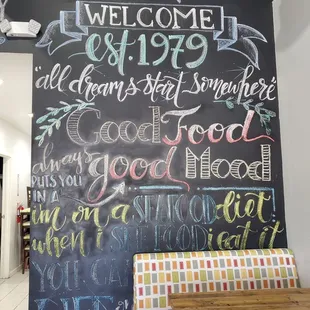 WELCOME
est. 1979
"all dreams start somewhere"
Good Food
always good Mood
PUTS YOU
IN A
im on a SEAFOOD diet.
when i SEE FOOD i eat it
YOU CAN
DIET